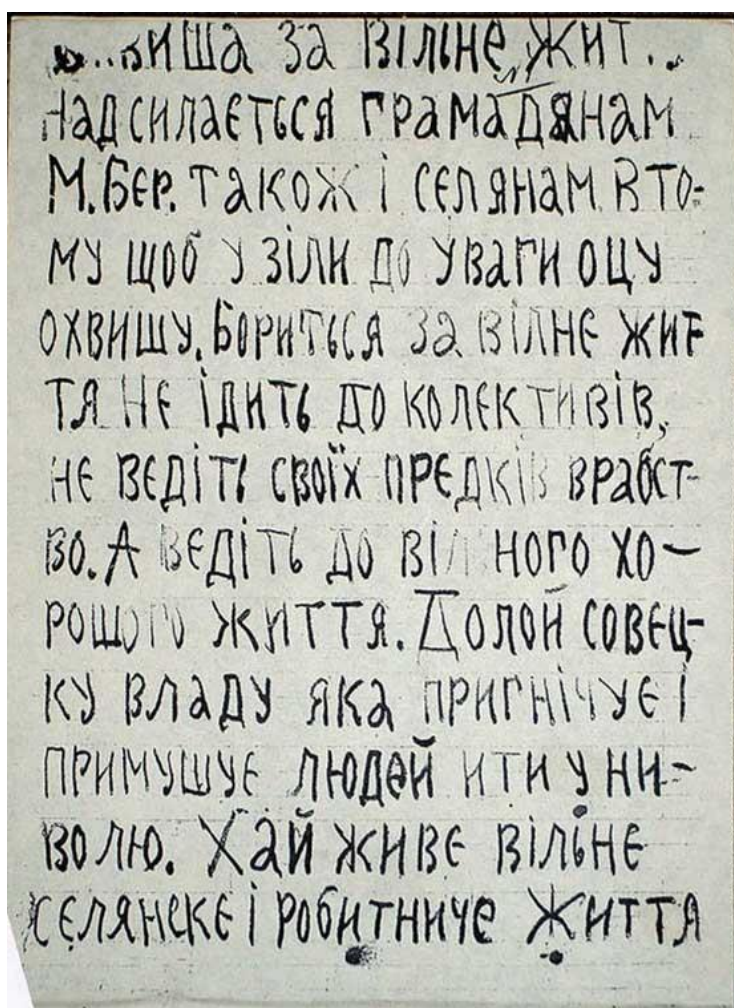 ..виша за вільне жит..
Надсилається грамадянам
М. Бер. також і селянам в то-
му щоб узіли до уваги оцу
охвишу. Бориться за вілне жит
тя не їдить до колективів,
не ведіть своїх предків врабст-
во. А ведіть до вільного хо-
рошого життя. Долой совец-
ку владу яка пригнічує і
примушує людей ити у ни-
волю. Хай живе вільне
селянске і робитниче життя